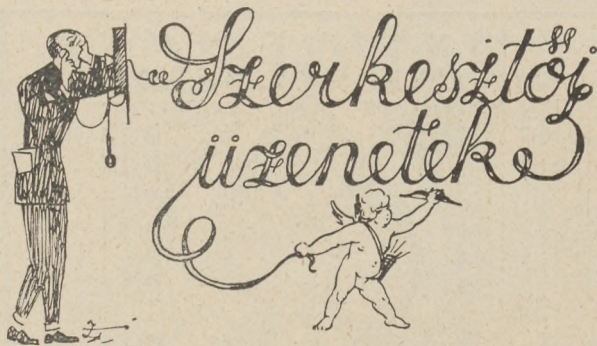 Szerkesztői
üzenetek